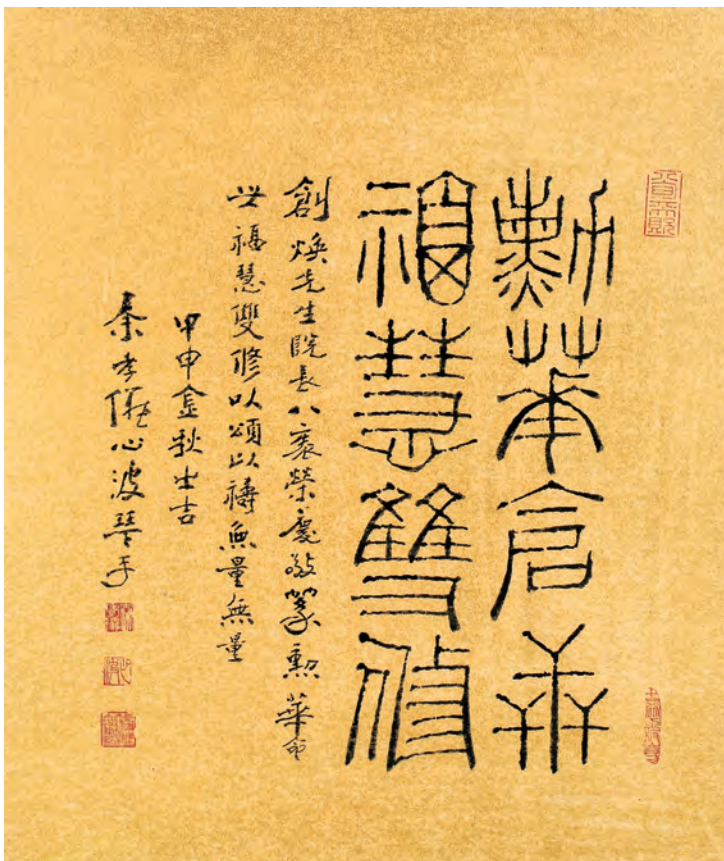 勳華命世
福慧雙修
創煥先生院長八袠榮慶敬篆勳華命
世福慧雙修以頌以禱無量無量
甲申金秋之吉
秦孝儀心波拜手